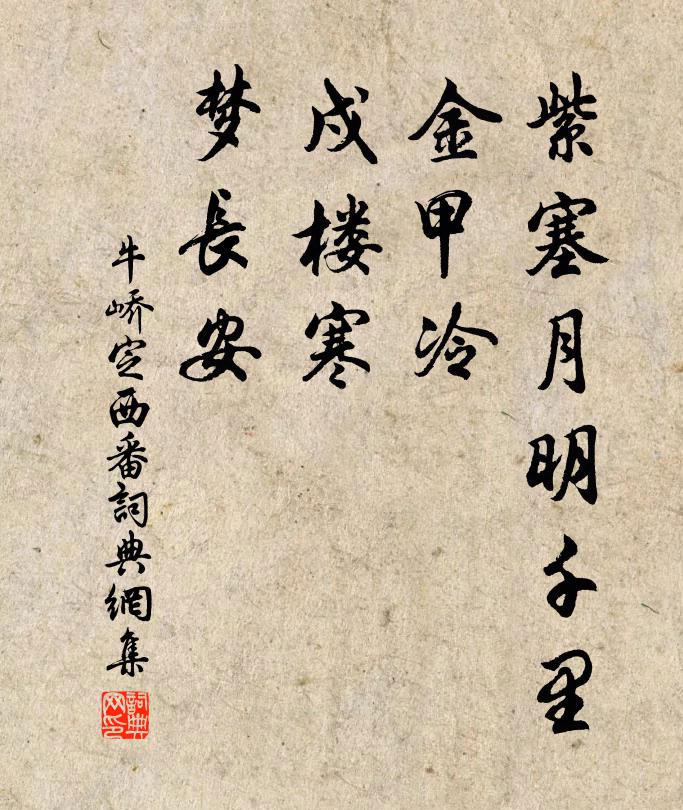 紫塞月明千里
金甲冷
戍楼寒
梦長安
牛峤定西番詞典網集
詞典网印